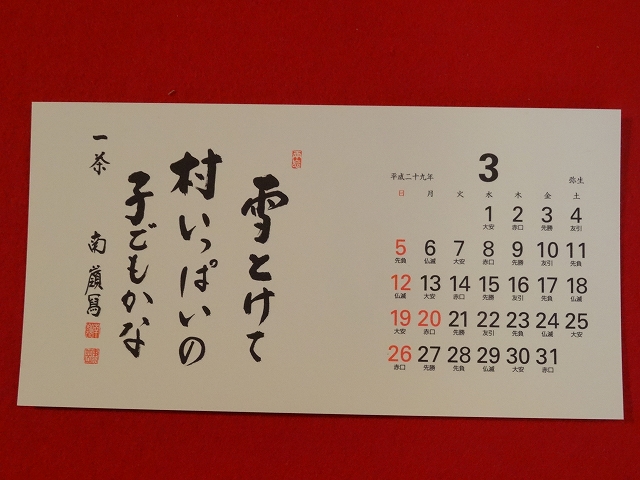 雪とけて
村いっぱいの
子どもかな
一茶
南嶺寫
平成二十九年 3 弥生
日 月 火 水 木 金 土
1 2 3 4
大安 赤口 先勝 友引
5 6 7 8 9 10 11
先負 仏滅 大安 赤口 先勝 友引 先負
12 13 14 15 16 17 18
仏滅 大安 赤口 先勝 友引 先負 仏滅
19 20 21 22 23 24 25
大安 赤口 先勝 友引 先負 仏滅 大安
26 27 28 29 30 31
赤口 先勝 先負 仏滅 大安 赤口